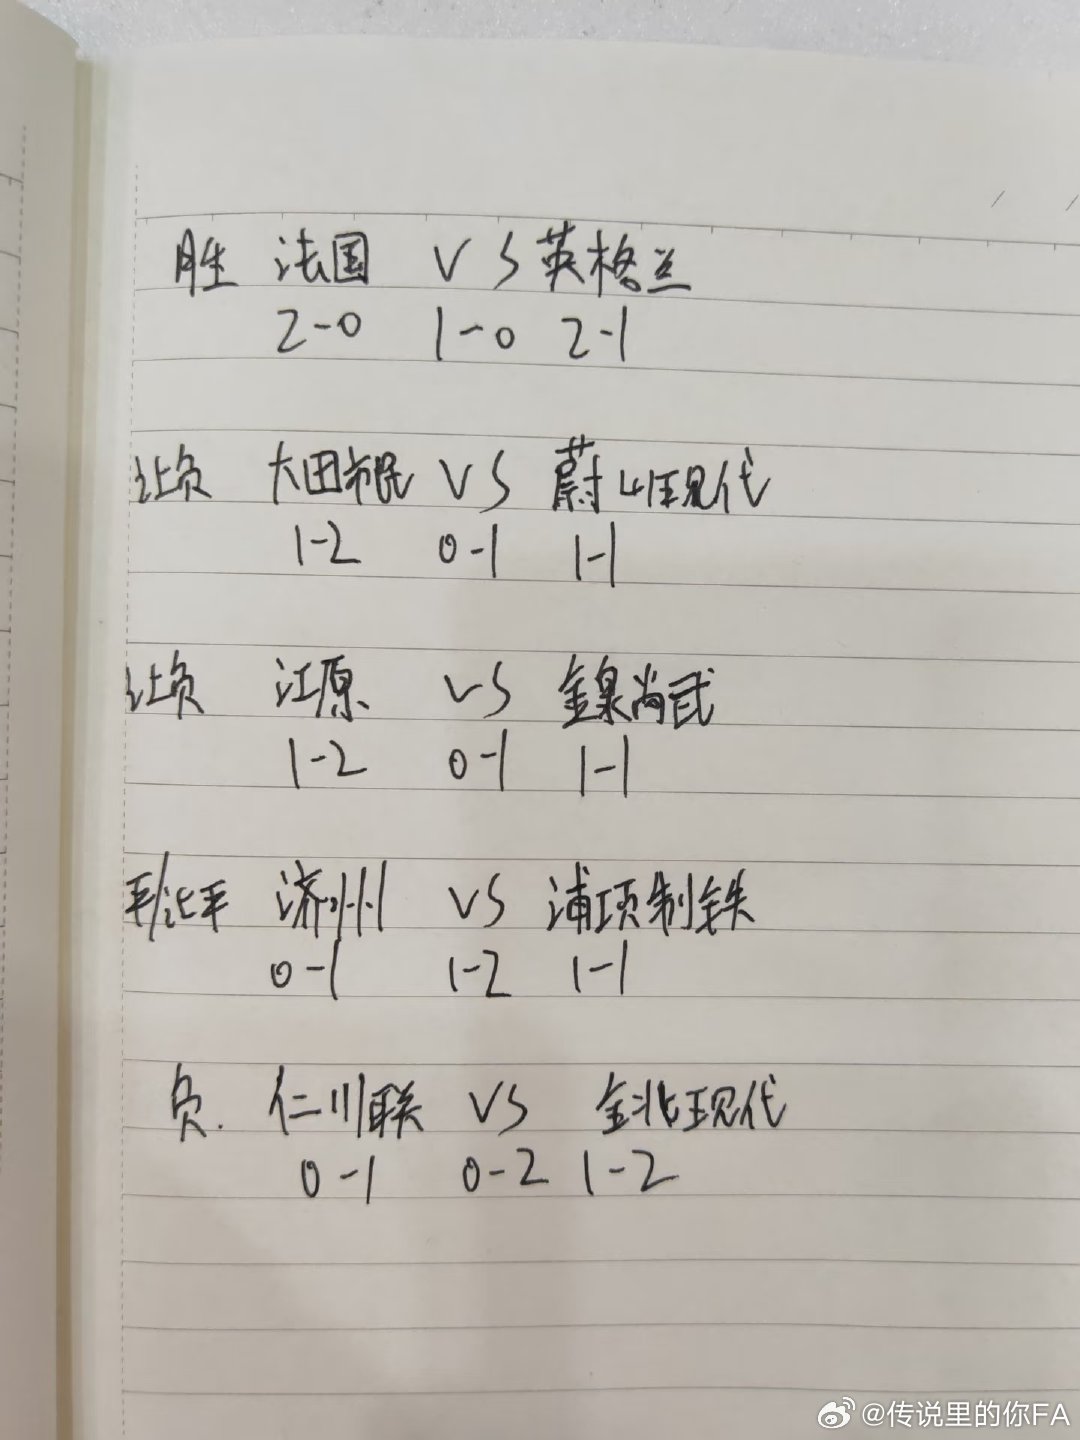 胜 法国 VS 英格兰
2-0 1-0 2-1
让负 大田市民 VS 蔚山现代
1-2 0-1 1-1
让负 江原 VS 金泉尚武
1-2 0-1 1-1
平/让平 济州 VS 浦项制铁
0-1 1-2 1-1
负. 仁川联 VS 全北现代
0-1 0-2 1-2
@传说里的你FA